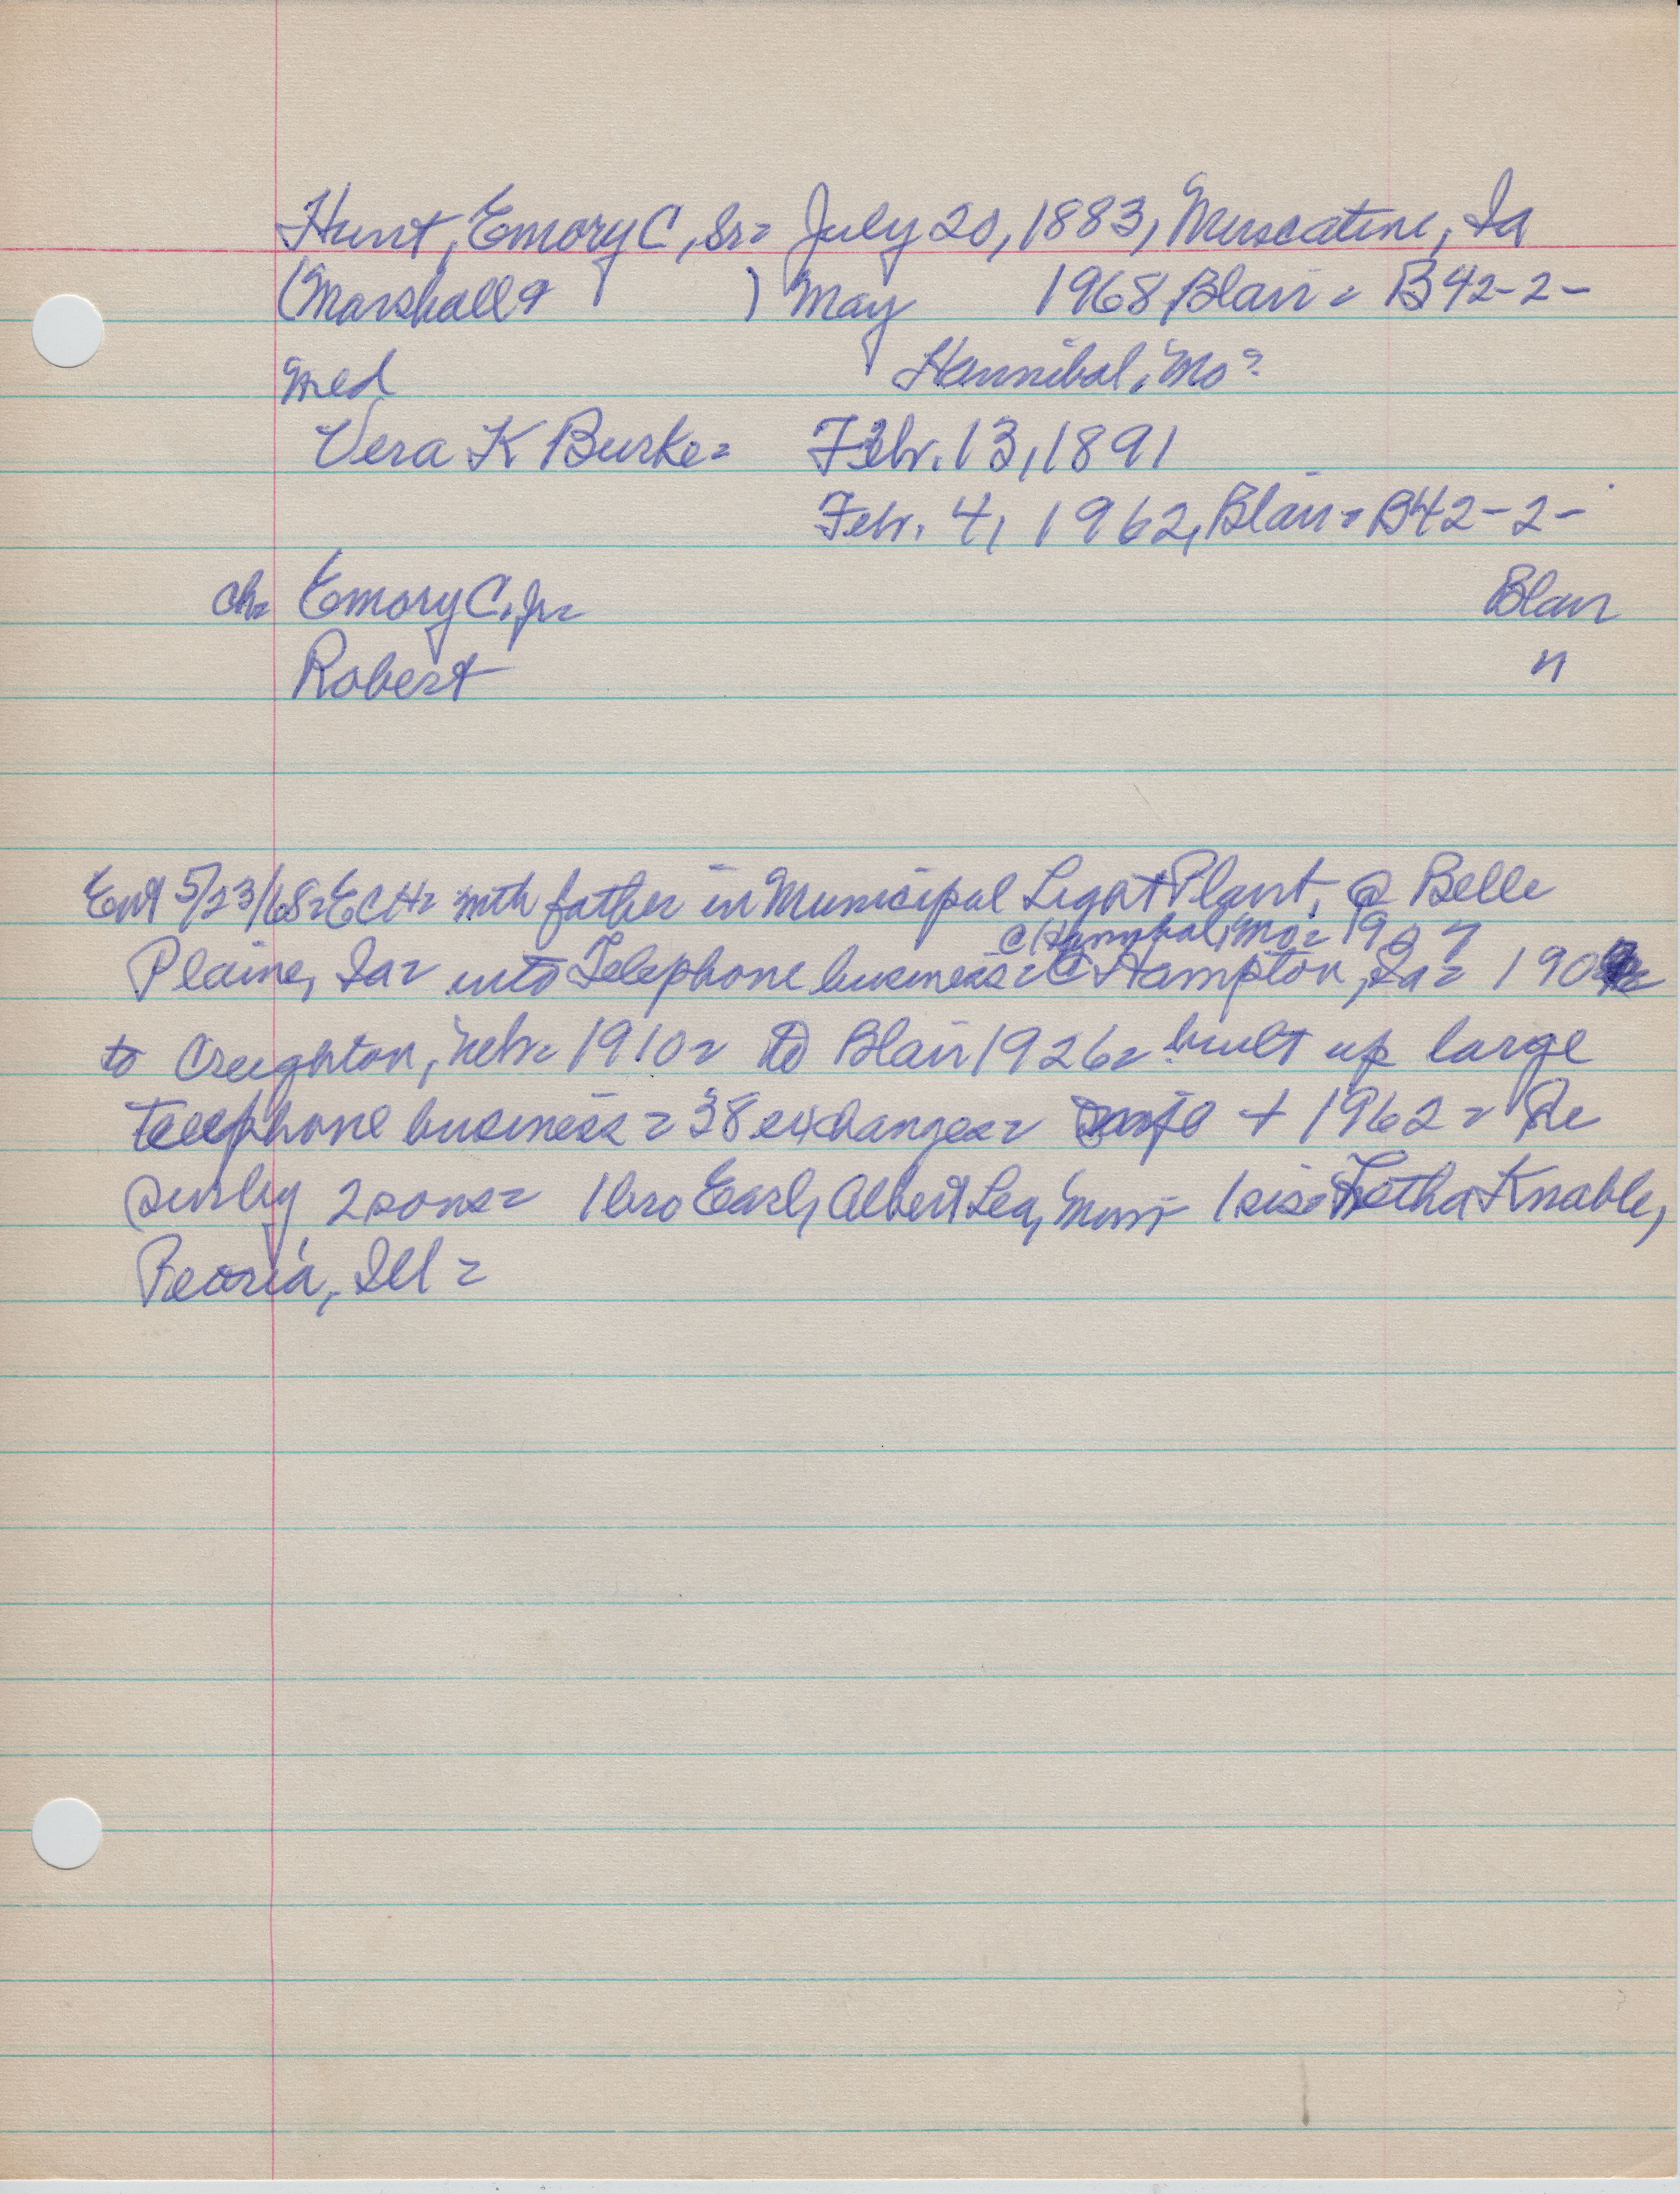 Hunt, Emory C, Sr= July 20, 1883, Muscatine, Ia
(Marshall & ) May 1968, Blair = B42-2-
med Hannibal, Mo?
Vera K Burke= Febr. 13, 1891
Febr. 4, 1962, Blair = B42-2-
ch= Emory C, Jr= Blair
Robert "
Ent 5/23/68= ECH= with father in Municipal Light Plant, @ Belle
@ Hannibal, Mo= 1907
Plaine, Ia= into Telephone business= @ Hampton, Ia= 190
to Creighton, Nebr= 1910= to Blair 1926= built up large
telephone business= 38 exchanges= + 1962=
surby 2 sons= 1 bro Earl, Albert Lea, Minn- 1 sis= Fetha Knable,
Peoria, Ill=